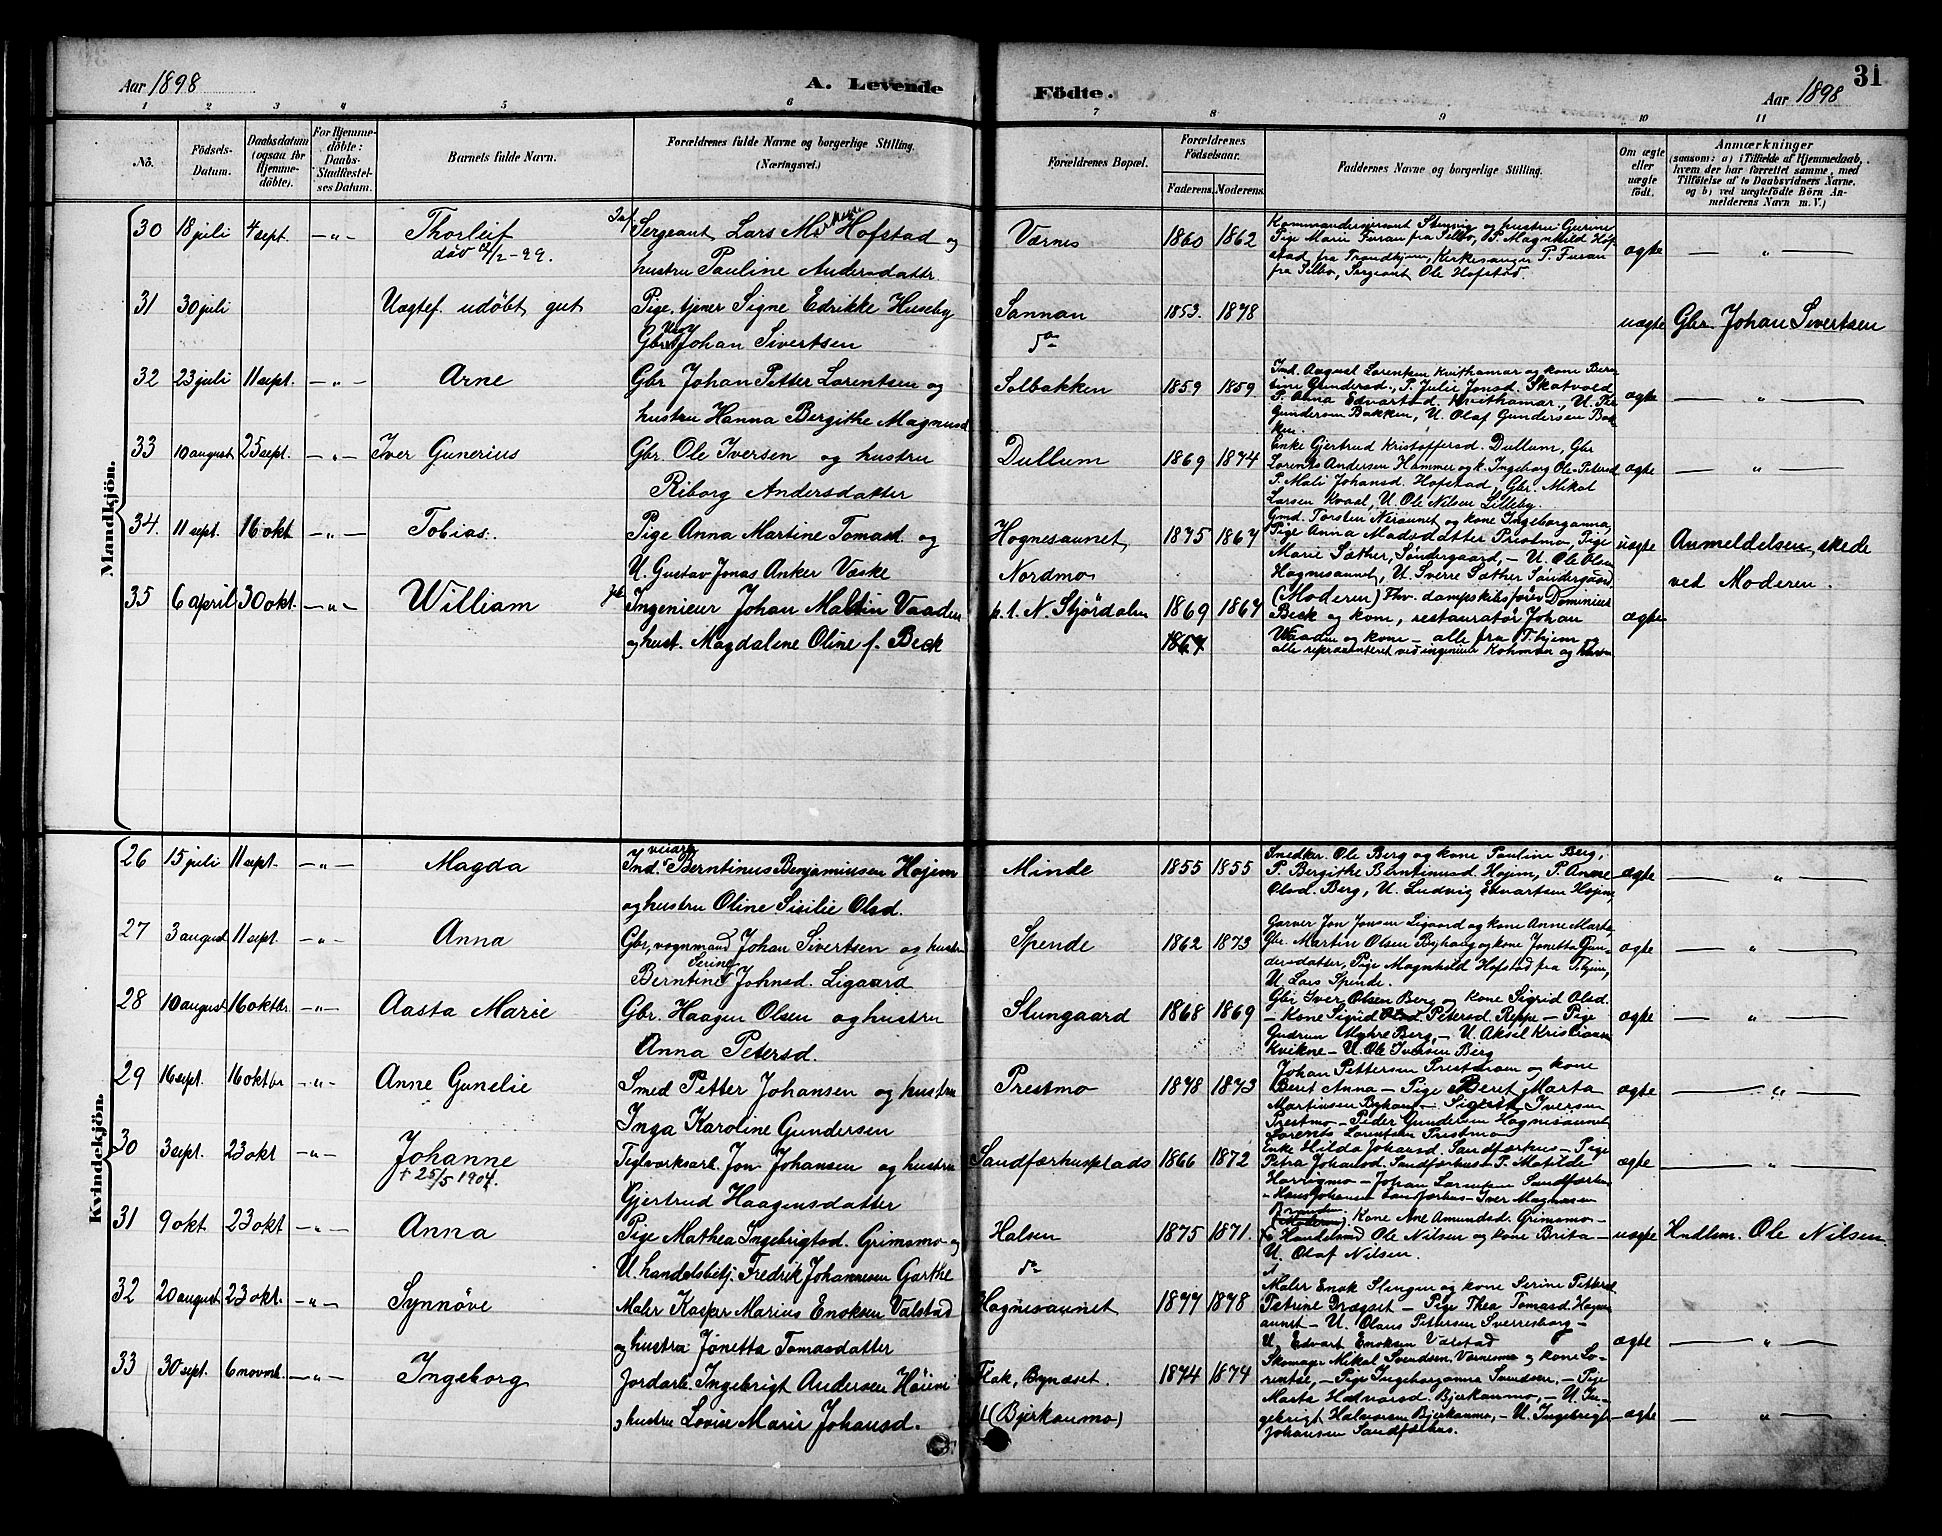 Aar 1898
A. Levende
Födte.
Aar 1898
31
1 2 3 4 5 6 7 8 9 10 11
No.
Födsels-Datum.
Daabsdatum (ogsaa for Hjemmedöbte).
For Hjemmedöbte: Daabs-Stadfæstelses Datum.
Barnets fulde Navn.
Forældrenes fulde Navne og borgerlige Stilling. (Næringsvei.)
Forældrenes Bopæl.
Forældrenes Födselsaar.
Faderens. Moderens.
Faddernes Navne og borgerlige Stilling.
Om ægte eller uægte födt.
Anmærkninger
(saasom: a) i Tilfælde af Hjemmedaab, hvem der har forrettet samme, med Tilföielse af to Daabsvidners Navne, og b) ved uægtefödte Börn Anmelderens Navn m. V.)
Mandkjön.
30 18 juli 4 sept. — " — Thorleif Sergeant Lars M. Hofstad og Værnes 1860 1862 ægte — " —
död 4/2-99. hustru Pauline Andersdattr.
Kommandersersjant Stenvig og hustru Gurine
Pige Marie Furan fra Selbo, P. Magnhild Hofstad fra Trondhjem, Kirkesanger P. Furan
fra Selbo, Sergeant Ole Hofstad
31 30 juli Uægtef. udøbt gut Pige, tjener Signe Edrikke Huseby Sannan 1853. 1878 uægte Gbr. Johan Sivertsen
Gbr. Johan Sivertsen do
32 23 juli 11 sept. — " — Arne Gbr Johan Petter Lorentsen og Solbakken 1859 1859 ægte — " —
hustru Hanna Bergithe Magnusd.
Ind. August Lorentsen Kvithamar og kone Berntine Gundersd., P. Julie Jonsd. Skatvold
P. Anna Edvartsd. Kvithamar, U. Peter
Gundersen Bakken, U. Olaf Gundersen Bakken.
33 10 august 25 sept. — " — Iver Gunerius Gbr. Ole Iversen og hustru Dullum 1869 1874 ægte — " —
Riborg Andersdatter
Enke Gjertrud Kristoffersd. Dullum, Gbr
Lorents Andersen Hammer og k. Ingeborg Ole-Petersd
P. Mali Johansd. Hofstad, Gbr. Mikal
Larsen Kvaal, U. Ole Nilsen Lilleby.
34. 11 sept. 16 okt — " — Tobias. Pige Anna Martine Tomasd og Hognesaunet 1875 1867 uægte Anmeldelsen skede
U. Gustav Jonas Anker Væske Nordmo ved Moderen.
Gmd. Torsten Neraunet og kone Ingeborganna,
Pige Anna Madsdatter Prestmo, Pige
Marie Sæther, Søndergaard, — U. Ole Olsen
Hognesaunet, U. Sverre Sæther Søndergaard
(Moderen)
35 6 april 30 okt. — " — William Ingeniør Johan Martin Vaaden p. t. N. Stjørdalen 1869 1867 ægte
og hust. Magdalene Oline f. Beck 1867
Fhv. dampskibsfører Dominius
Beck og kone, restauratør Johan
Waaden og kone — alle fra T.hjem og
alle repræsenteret ved ingeniør Kohman og hustru
Kvindekjön.
26 15 juli 11 sept. — " — Magda Ind. veiarb. Berntinus Benjaminsen Hojem Minde 1855 1855 ægte — " —
og hustru Oline Sisilie Olsd.
Snedker. Ole Berg og kone Pauline Berg,
P. Bergithe Berntinusd Hojem, P. Anne
Olsd. Berg, U. Ludvig Edvartsen Hojem,
27 3 august 11 sept — " — Anna Gbr, vognmand Johan Sivertsen og hustru Spende 1862 1873 ægte — " —
Berntine Serine Johnsd. Ligaard
Garver Jon Jonsen Ligaard og kone Anne Marta
Gbr. Martin Olsen Byhaug og kone Jonetta Gundersdatter, Pige Magnhild Hofstad fra T.hjem,
U. Lars Spende.
28 10 august 16 oktbr. — " — Aasta Marie Gbr. Haagen Olsen og hustru Slungaard 1868 1869 ægte — " —
Anna Petersd.
Gbr Iver Olsen Berg og kone Sigrid Olsd.
— Kone Sigrid Petersd. Reppe — Pige
Gudrun Berg, — U. Aksil Kristiansen
Kvikne — U. Ole Iversen Berg
29 16 sept. 16 oktbr — " — Anne Gunelie Smed Petter Johansen og hustru Prestmo 1878 1873 ægte — " —
Inga Karoline Gundersen
Johan Pettersen Prestmoen og kone
Beret Anna — Pige Beret Marta
Martinsen Byhaug — Sigurd Iversen
Prestmo — Peder Gundersen Hognesaunet
Lorents Lorentsen Prestmo
30 3 sept. 23 okt — " — Johanne Teglværksarb. Jon Johansen og hustru Sandfærhusplads 1866 1872 ægte — " —
† 25/5 1904. Gjertrud Haagensdatter
Enke Hilda Johansd. Sandfærhus — Pige
Petra Johansd. Sandfærhus — P. Matilde
— Johan Larsen Sandfærhus
— Hans Johansen Sandfærhus — Iver Magnussen
31 9 okt. 23 okt — " — Anna Pige Mathea Ingebrigtsd. Grimsmo og Halsen 1875 1871. uægte Hndlsm. Ole Nilsen.
U. handelsbetj. Fredrik Johannesen Garthe do
(Moderen), Kone Ane Amundsd. Grimsmo —
Handelsmd Ole Nilsen og kone Brita —
U. Olaf Nilsen.
32 20 august 23 okt. — " — Synnöve Maler Kasper Marius Enoksen Valstad Hognesaunet 1877 1878 ægte — " —
og hustru Jonetta Tomasdatter
Maler Enok Slungen og kone Serine Pettersd
Petrine Græset — Pige Thea Tomasd Hognesaunet — U. Olaus Pettersen Sverresborg —
U. Edvart Enoksen Valstad
33 30 sept. 6 novmb. — " — Ingeborg Jordarb. Ingebrigt Andersen Flak, Bynæset. 1874 1874 ægte — " —
og hustru Lovise Marie Johansd. (Bjerkanmo)
Skomager Mikal Svendsen Værnesmo og kone Lorentse, — Pige Ingeborganna Svendsen, — Pige
Marta Halvorsd. Bjerkanmo, — U. Ingebrigt Halvorsen Bjerkanmo, — U. Ingebrigt
Johansen Sandfærhus.